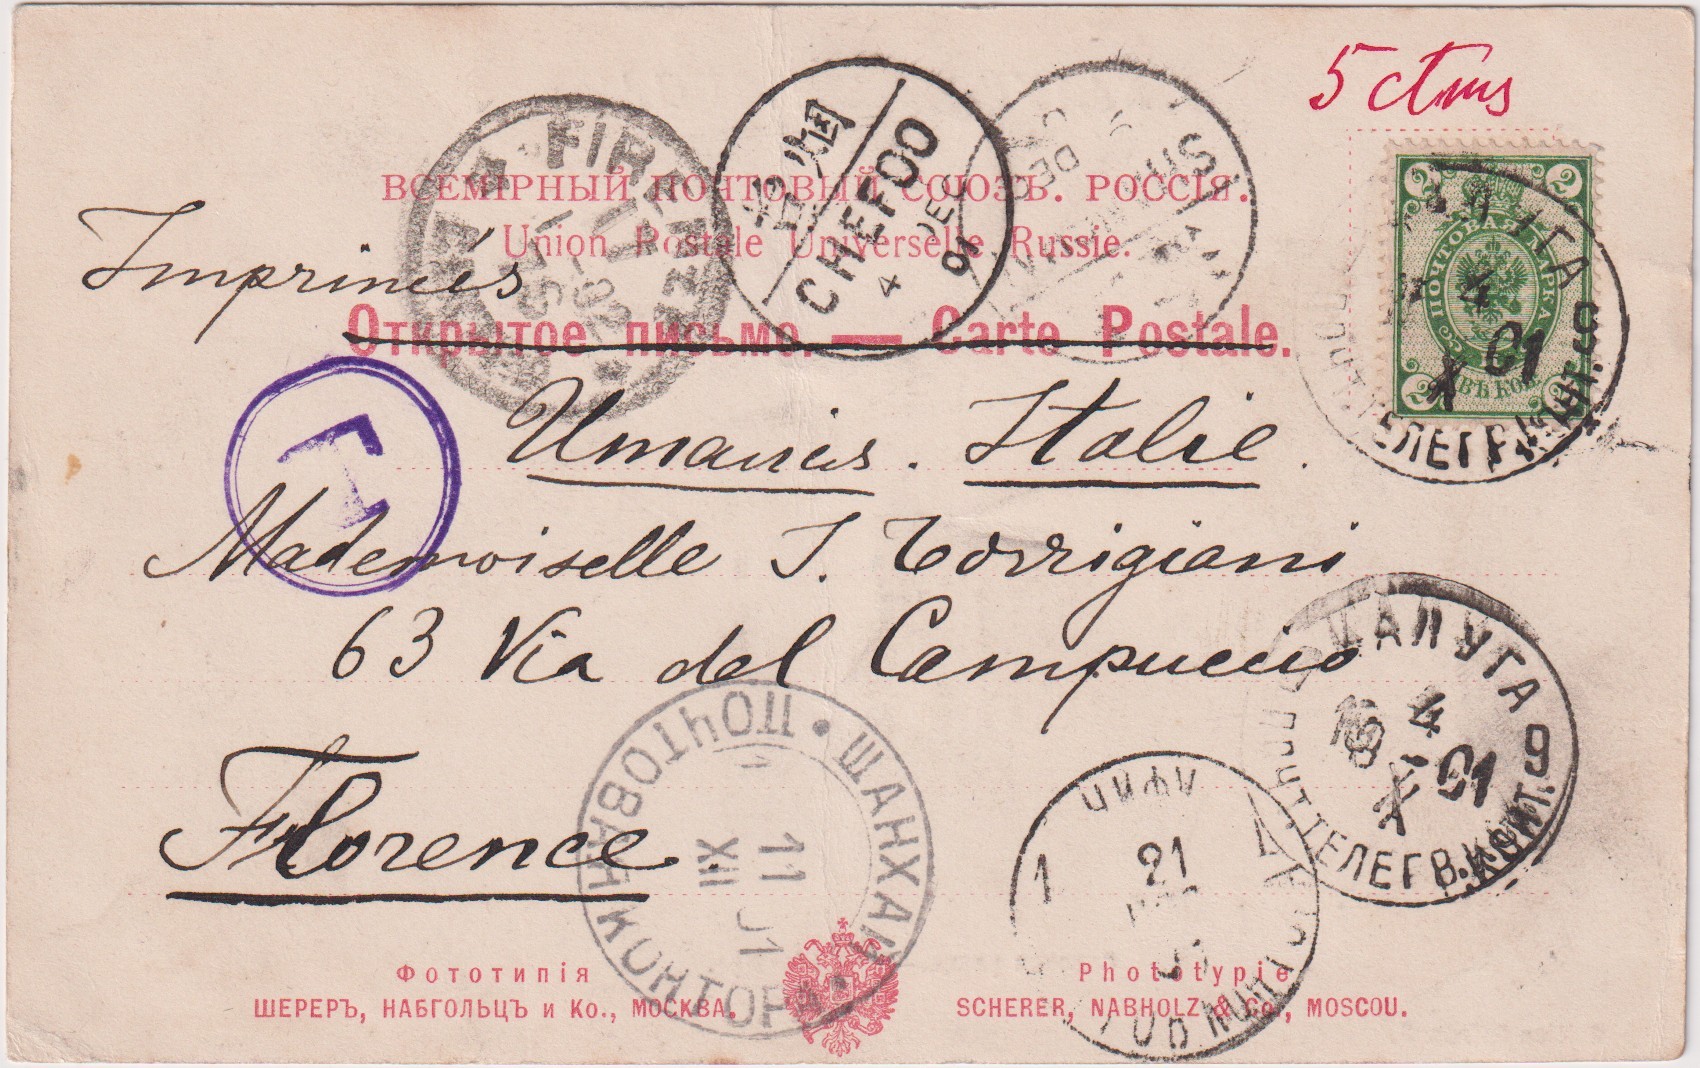 5 ctms
ВСЕМІРНЫЙ ПОЧТОВЫЙ СОЮЗЪ. РОССІЯ.
Union Postale Universelle Russie.
Imprimés
Открытое письмо. — Carte Postale.
FIRENZE
烟
CHEFOO
4 DEC 01
2 2
ПОЧТОВАЯ МАРКА
КОП.
2 2
КАЛУГА
4
X 01
T
Italie.
Mademoiselle I. Torrigiani
63 Via del Campuccio
Florence
КАЛУГА
4
X 01
ШАНХАЙ ПОЧТОВАЯ КОНТОРА
11 XII 01
ЧИФУ
1 21
Фототипія
ШЕРЕРЪ, НАБГОЛЬЦЪ и Ко., МОСКВА.
Phototypie
SCHERER, NABHOLZ & Co., MOSCOU.